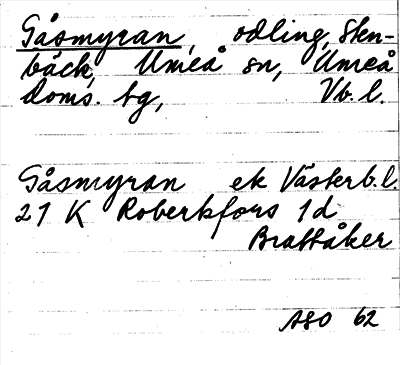 Gåsmyran, odling, Sten-
bäck, Umeå sn, Umeå
doms. bg, Vb. l.
Gåsmyran ek Västerb.l.
21 K Robertsfors 1d
Brattåker
ASO 62